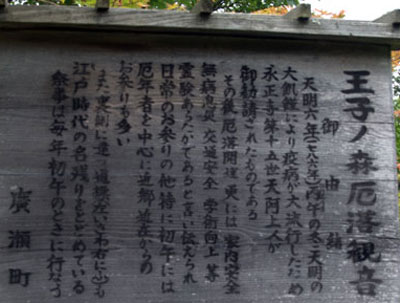 王子ノ森厄落観音
御由緒
天明六年(一七八六年)丙午の冬、天明の
大飢饉により疫病が大流行したため
永正寺第十五世天阿上人が
御勧請されたものである
その後、厄落開運、更には、家内安全
無病息災、交通安全、学術向上、等
霊験あらたかであると言い伝えられ
日常のお参りの他特に初午には
厄年者を中心に近郷近在からの
お参りも多い
また裏側に建つ道標
江戸時代の名残りをとどめている
祭事は毎年初午のときに行なう
廣瀬町